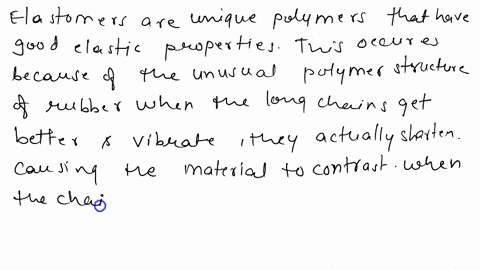 Elastomers are unique polymers that have
good elastic properties. This occures
because of the unusual polymer structure
of rubber when the long chains get
better & vibrate, they actually shorten.
causing the material to contrast. when
the chai